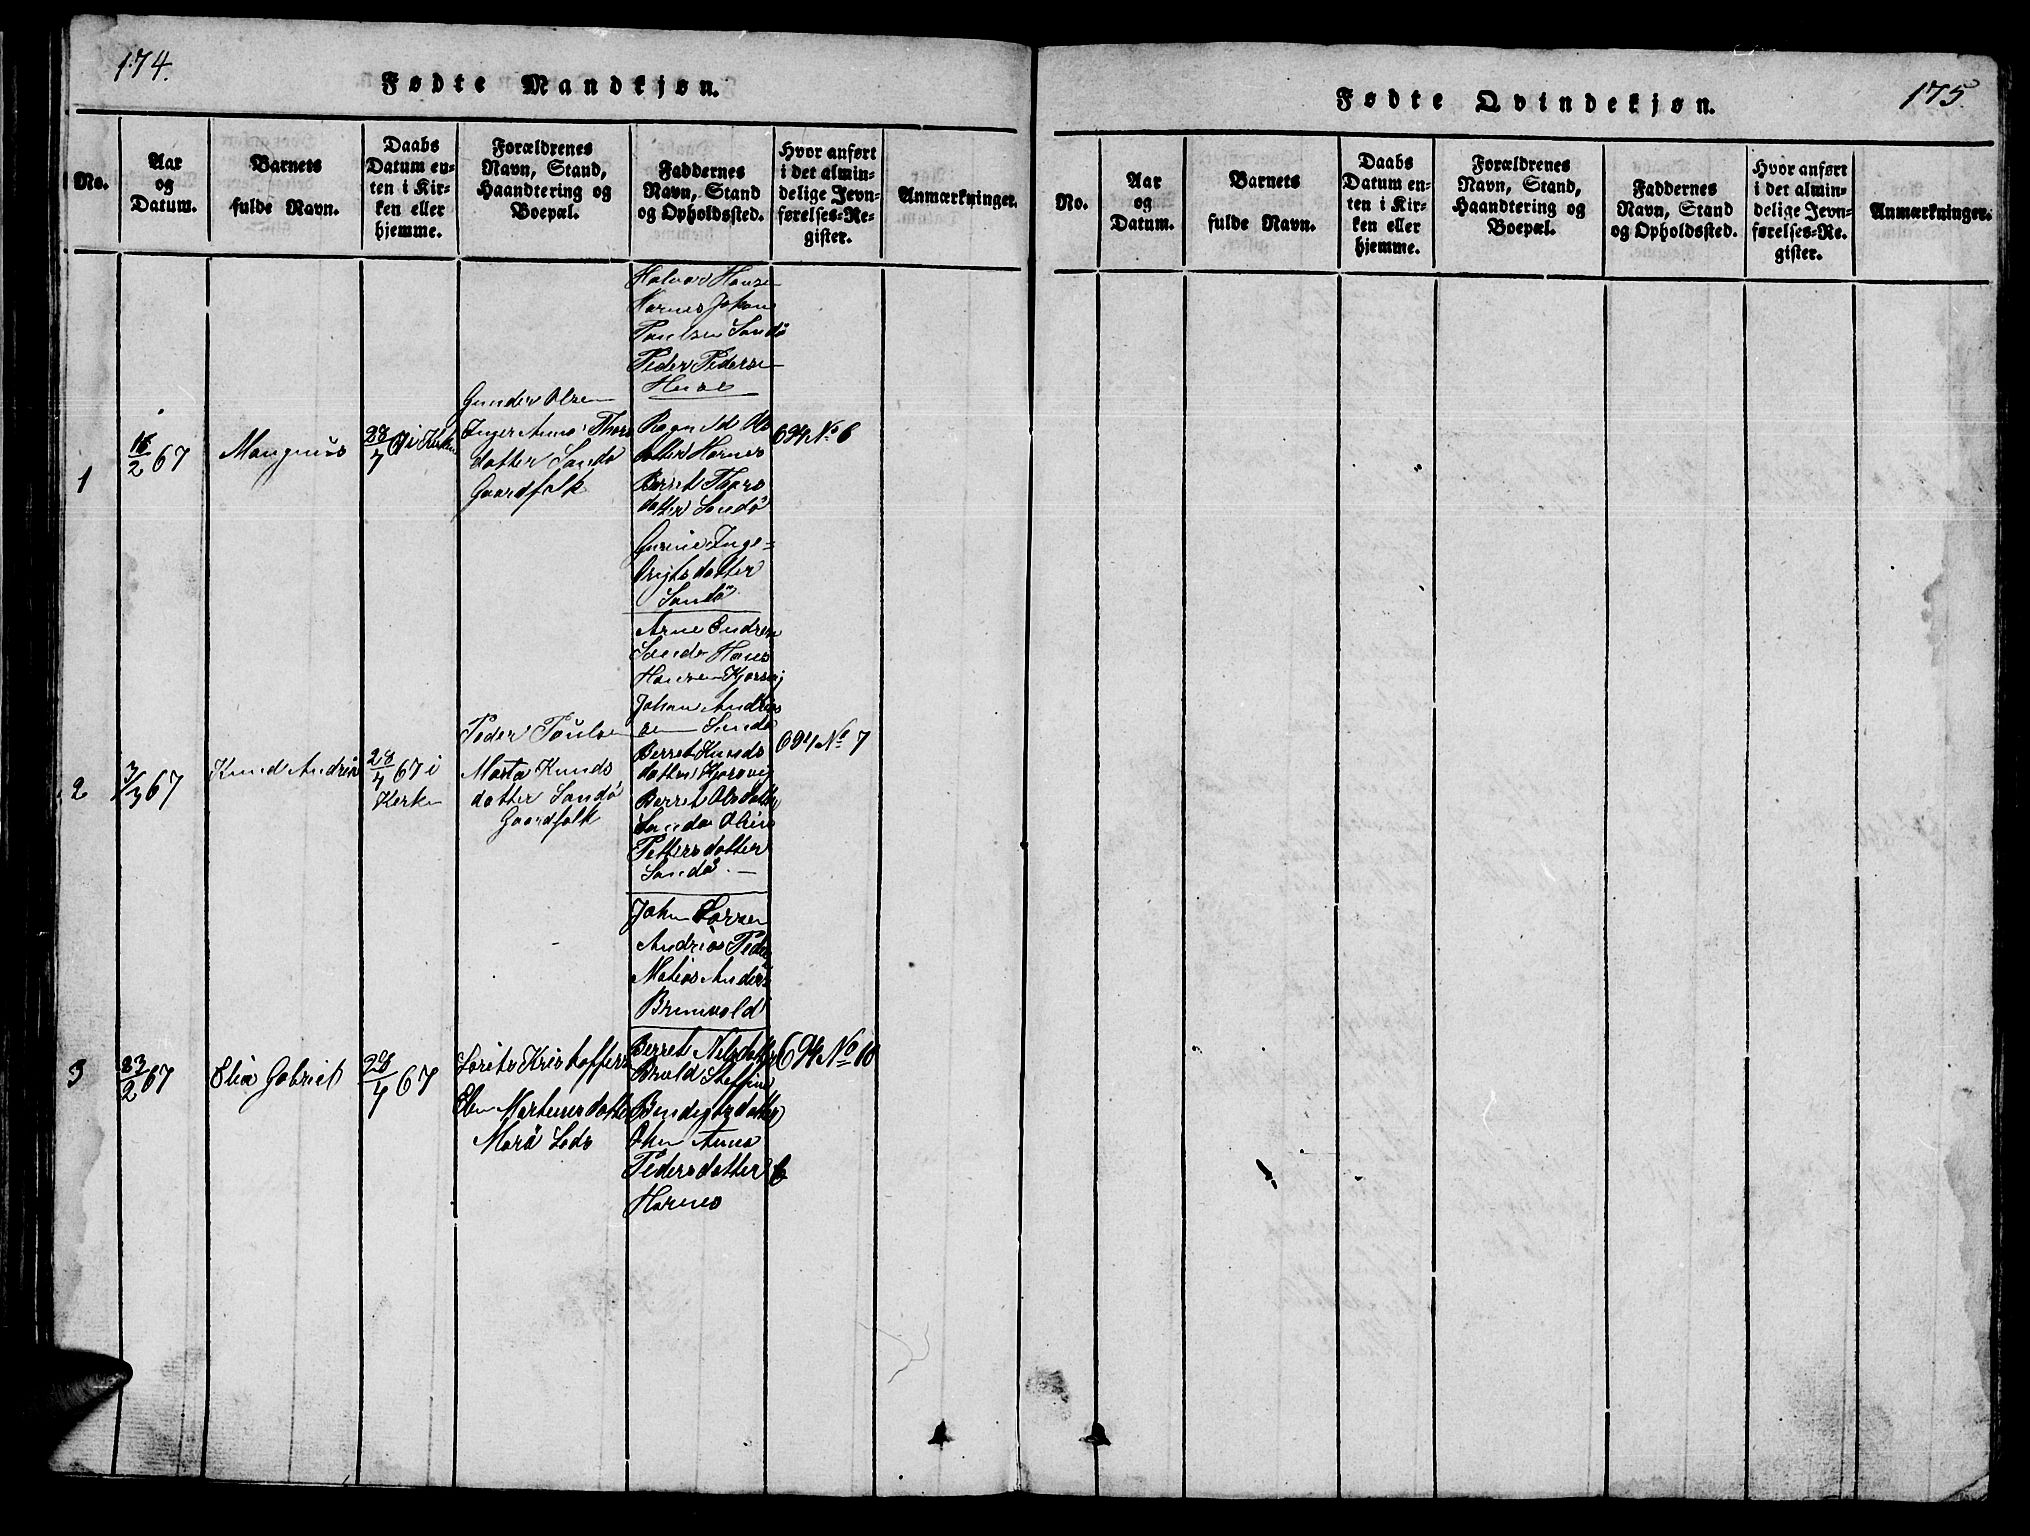 174.
Fødte Mandkjøn.
No.
Aar
og
Datum.
Barnets
fulde Navn.
Daabs
Datum en-
ten i Kir-
ken eller
hjemme.
Forældrenes
Navn, Stand,
Haandtering og
Boepæl.
Faddernes
Navn, Stand
og Opholdssted.
Hvor anført
i det almin-
delige Jevn-
førelses-Re-
gister.
Anmærkninger.
1
67
Mangnus
28/4 67 i
Gunder Olsen
Inger Anna Thors
datter Sandö
Gaardfolk
Halvor Hanse
Harnes Johan
Paulsen Sandö
Peder Pederse
Huse
Ragnild Ols
datter Harnes
Berret Thors
datter Sandö
Gurine Inge=
brigtsdatter
Sandö
694 No 6
2
3/3 67
Knud Andrias
28/4 67 i
Kerken
Peder Paulsen
Marta Knuds
datter Sandö
Gaardfolk
Arne Endresen
Sandö Hans
Hansen Kjorsvig
Johan Andrias
sen Sandö
Berret Knuds
datter Kjorsvig
Berret Olsdatter
Sandö Oline
Pettersdatter
Sandö
694 No 7
3
23/2 67
Elia Gabriel
28/4 67
Lorits Kristoffers
Elen Martinusdatter
Marö Lods
John Larsen
Andrias Peder
Matias Anders
Brunvold
Berret Nilsdatter
Steffine
Bendigtsdatter
Anna
Pedersdatter
Harnes
694 No 10
175.
Fødte Qvindekjøn.
No.
Aar
og
Datum.
Barnets
fulde Navn.
Daabs
Datum en-
ten i Kir-
ken eller
hjemme.
Forældrenes
Navn, Stand,
Haandtering og
Boepæl.
Faddernes
Navn, Stand
og Opholdssted.
Hvor anført
i det almin-
delige Jevn-
førelses-Re-
gister.
Anmærkninger.